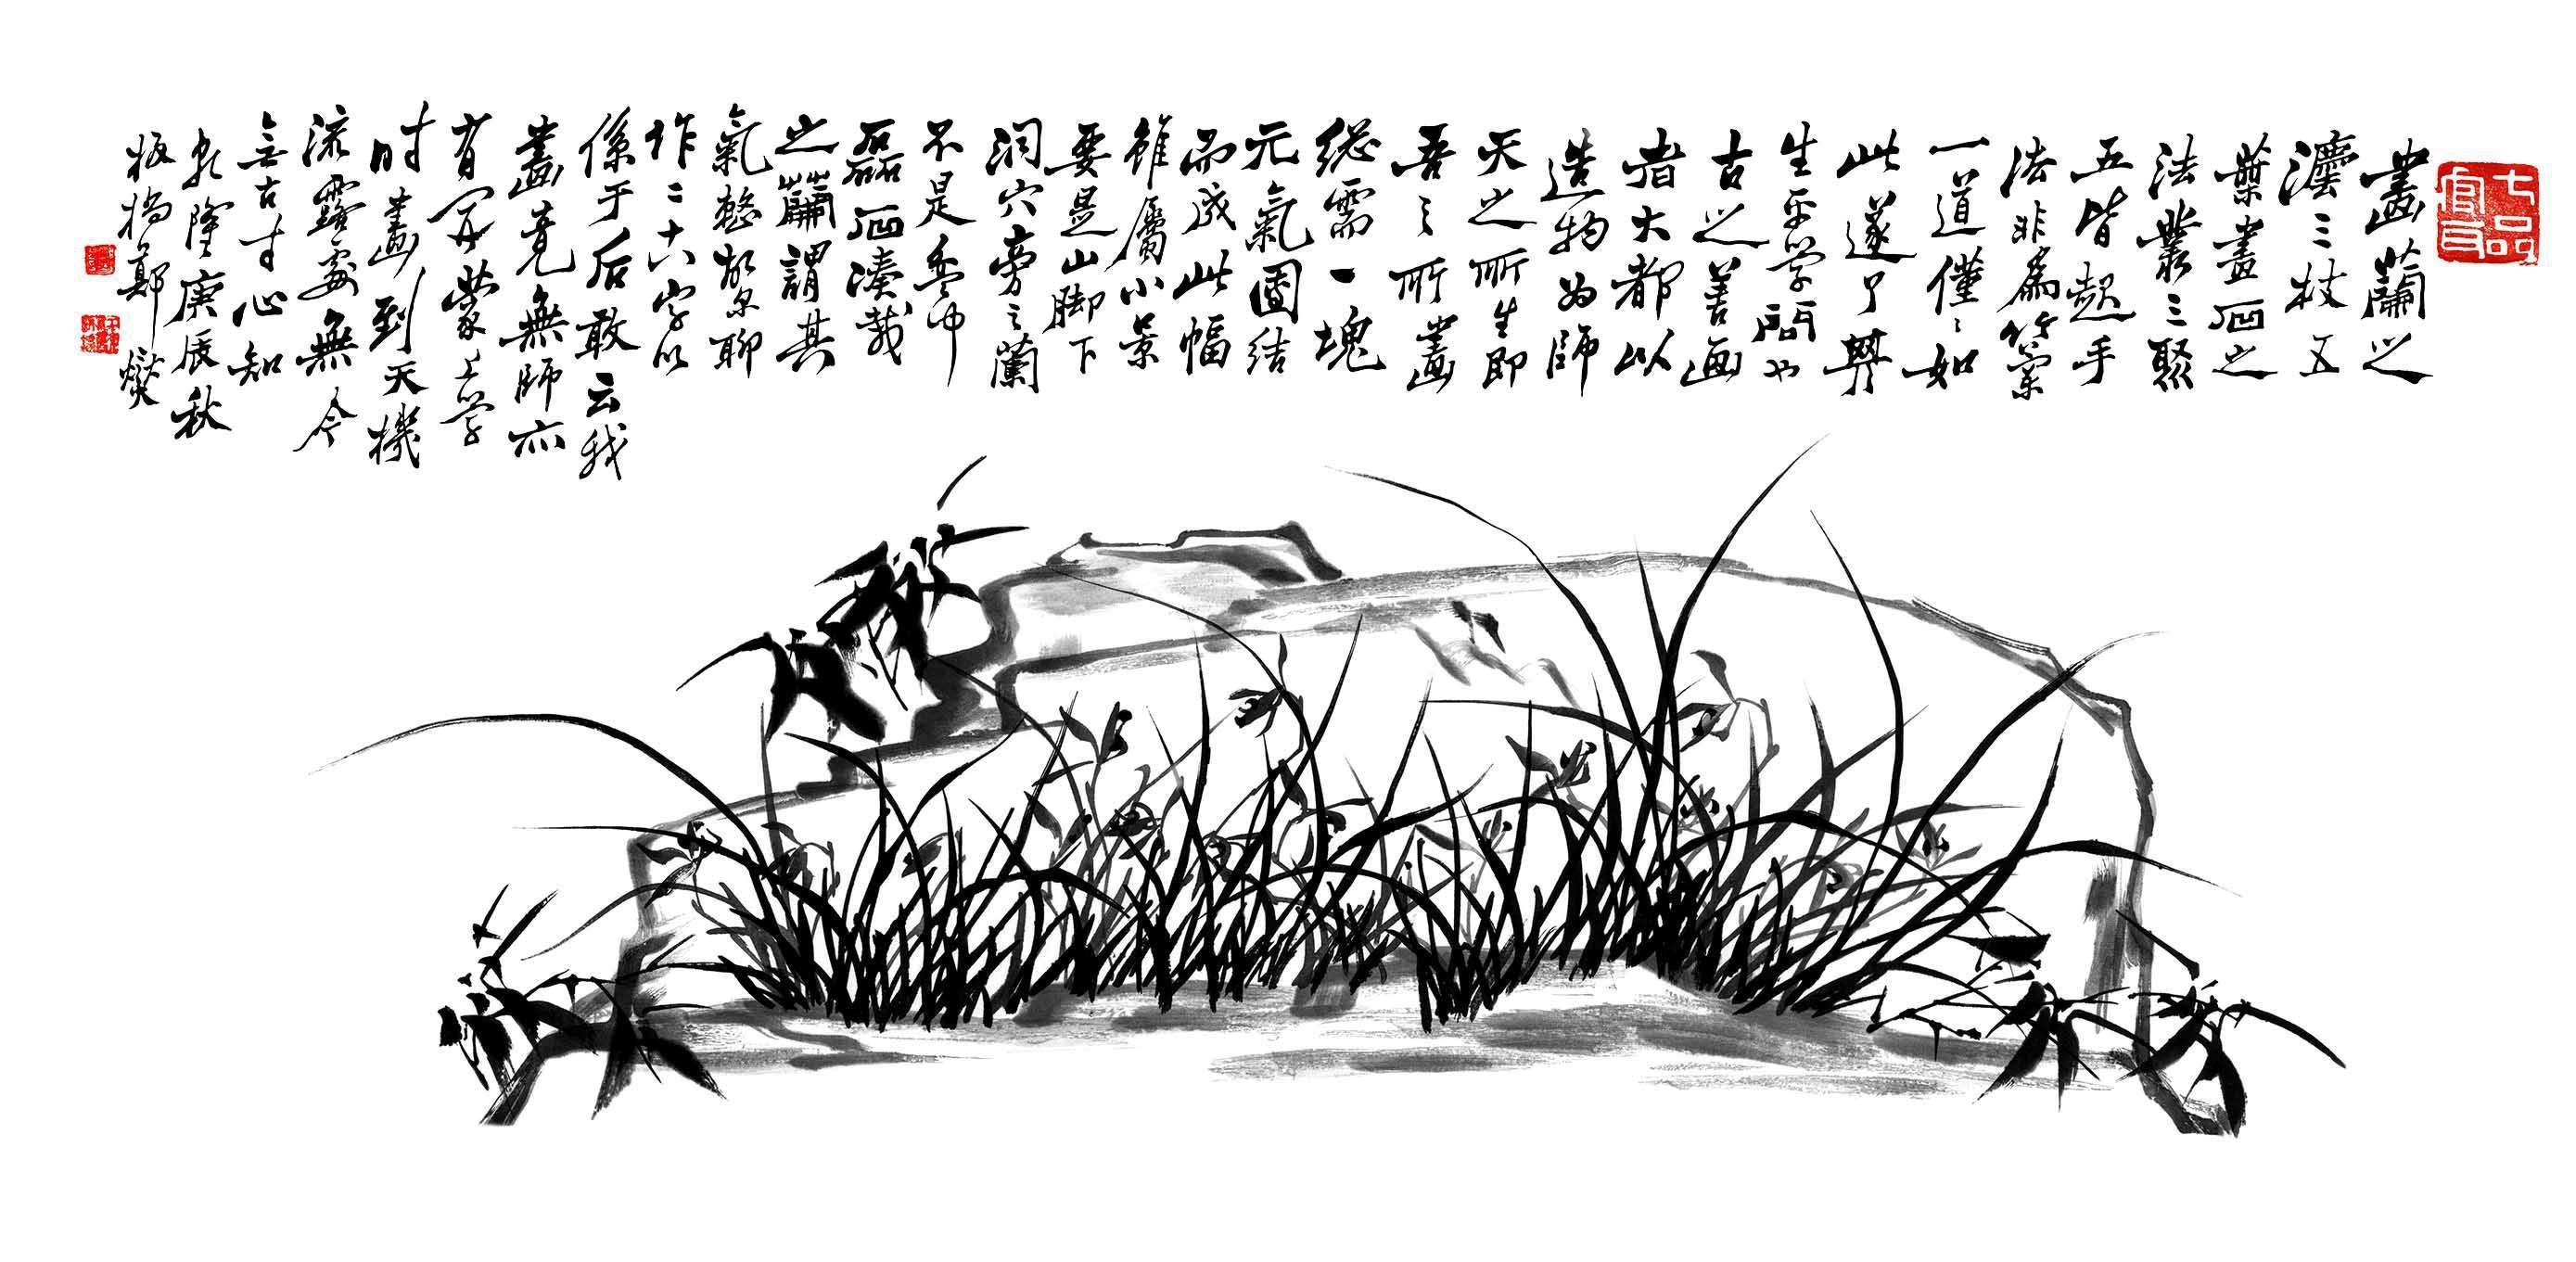 七品官耳
畫蘭之
灋三枝五
葉畫石之
法叢三聚
五皆起手
法非為竹蘭
一道僅〻如
此遂了其
生平學問也
古之善画
者大都以
造物為師
天之所生即
吾之所畫
總需一塊
元氣團結
而成此幅
雖屬小景
要是山脚下
洞穴旁之蘭
不是盆中
磊石湊栽
之蘭謂其
氣整故尔聊
作二十八字以
係于后敢云我
畫竟無師亦
有開蒙上學
时畫到天機
流露處無今
無古寸心知
乾隆庚辰秋
板橋鄭燮